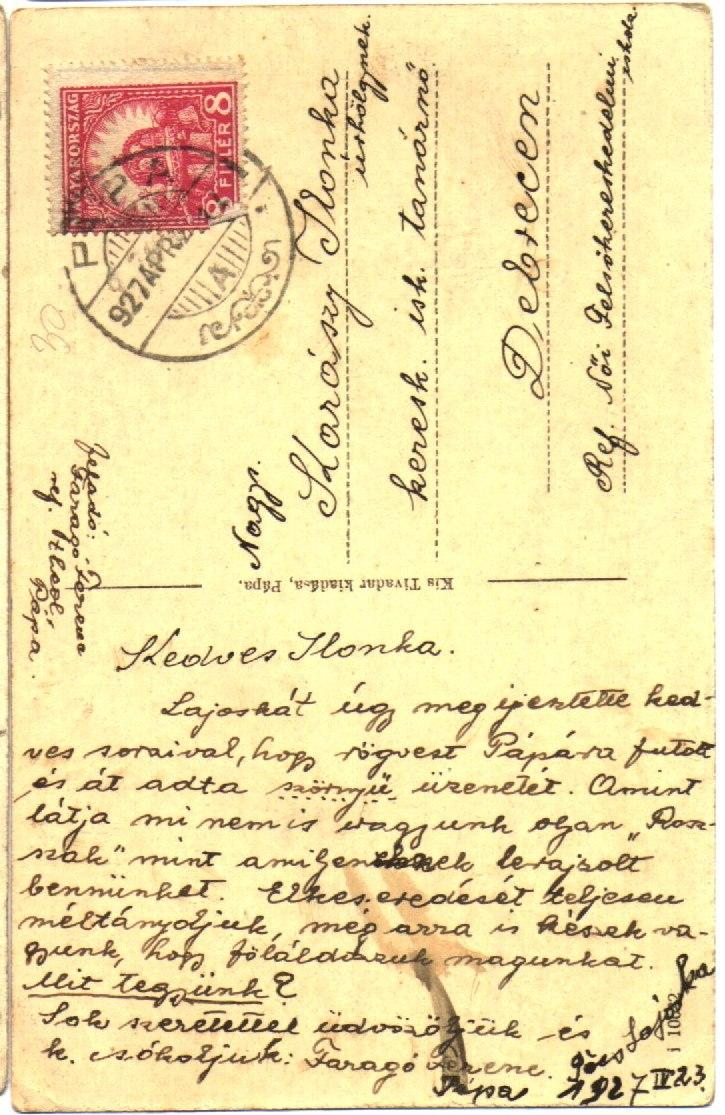 MAGYARORSZÁG
8 FILLÉR 8
PÁPA
927 APR
A
Nagys.
Szarászy Ilonka
úrhölgynek.
keresk. isk. tanárnő
Debrecen
Ref. Női Felsőkereskedelmi
iskola.
feladó:
Faragó Ferenc
ref.
Pápa.
Kis Tivadar kiadása, Pápa.
Kedves Ilonka.
Lajoskát úgy megijesztette ked-
ves soraival, hogy rögvest Pápára futott
és át adta szörnyű üzenetét. Amint
látja mi nem is vagyunk olyan „Rosz-
szak" mint amilyeneknek lerajzolt
bennünket. Elkeseredését teljesen
méltányoljuk, még arra is készek va-
gyunk, hogy föláldozzuk magunkat.
Mit tegyünk?
Sok szeretettel üdvözöljük és
k. csókoljuk: Faragó Ferenc. Lajoska
Pápa 1927 IV 23.